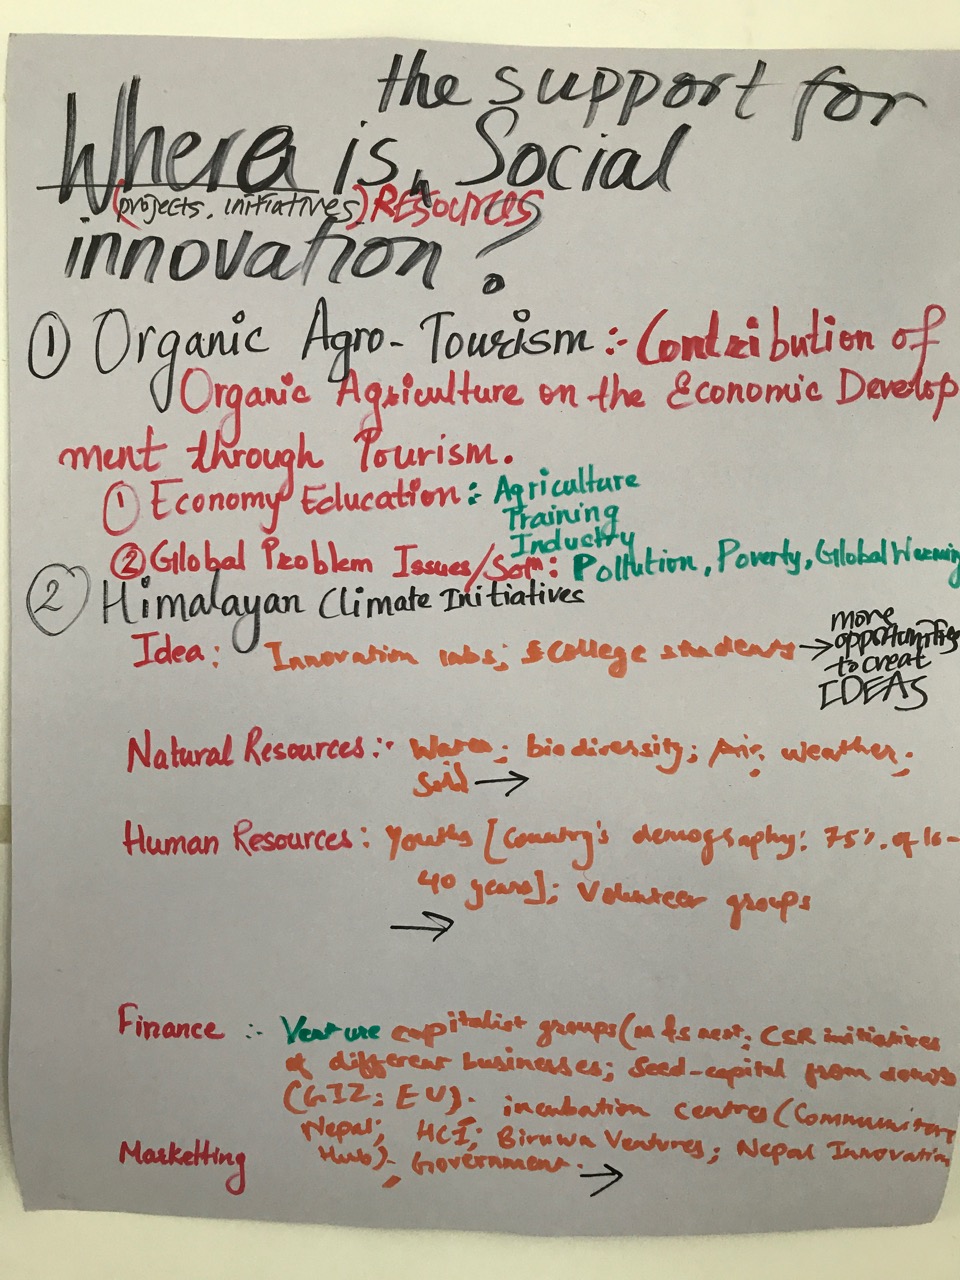 the support for
Where is Social
(projects, initiatives) RESOURCES
innovation?
① Organic Agro-Tourism :- Contribution of
Organic Agriculture on the Economic Develop
ment through Tourism.
① Economy Education : Agriculture
Training
Industry
② Global Problem Issues/ : Pollution, Poverty, Global Warming
② Himalayan Climate Initiatives
Idea : Innovation labs; College students → more
opportunities
to creat
IDEAS
Natural Resources :- ; biodiversity; Air, weather;
→
Human Resources : Youths [Country's demography: 75% of 16-
40 years]; Volunteer groups
→
Finance :- Venture capitalist groups ( ; CSR initiatives
of different businesses; Seed-capital from
(GIZ; EU). incubation centres (
Nepal; HCI; Biruwa Ventures; Nepal Innovation
Hub) Government. →
Marketting